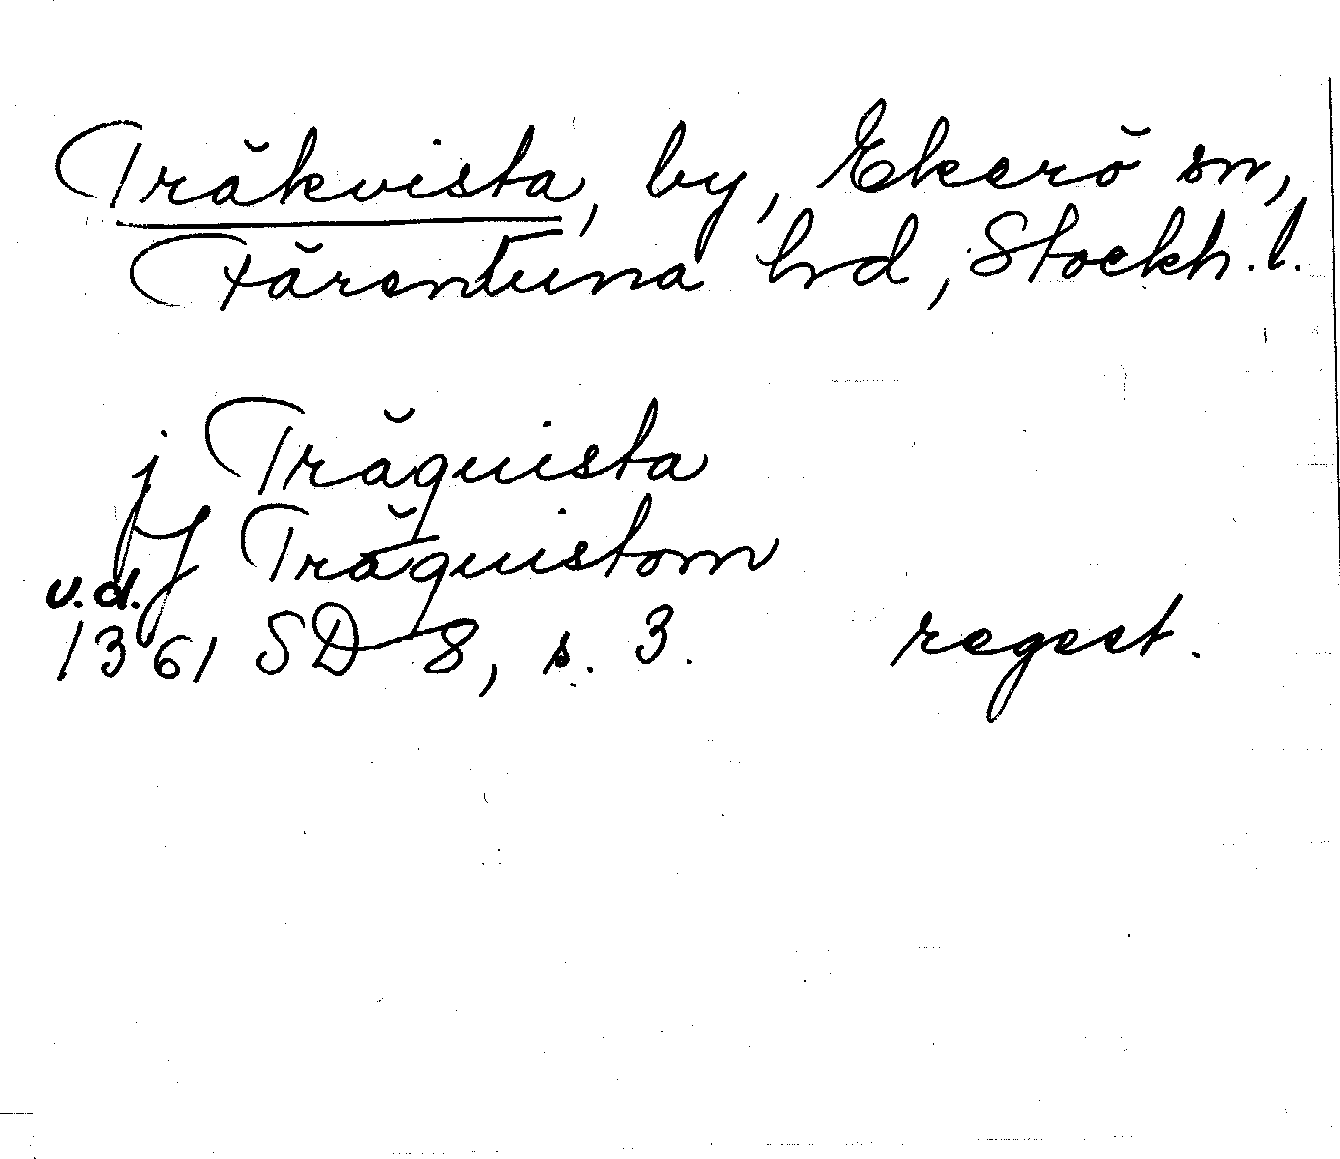 Träkvista, by, Ekerö sn,
Färentuna hd, Stockh. l.
j Träquista
J Träquistom
u.d.
1361 SD 8, s. 3. regest.